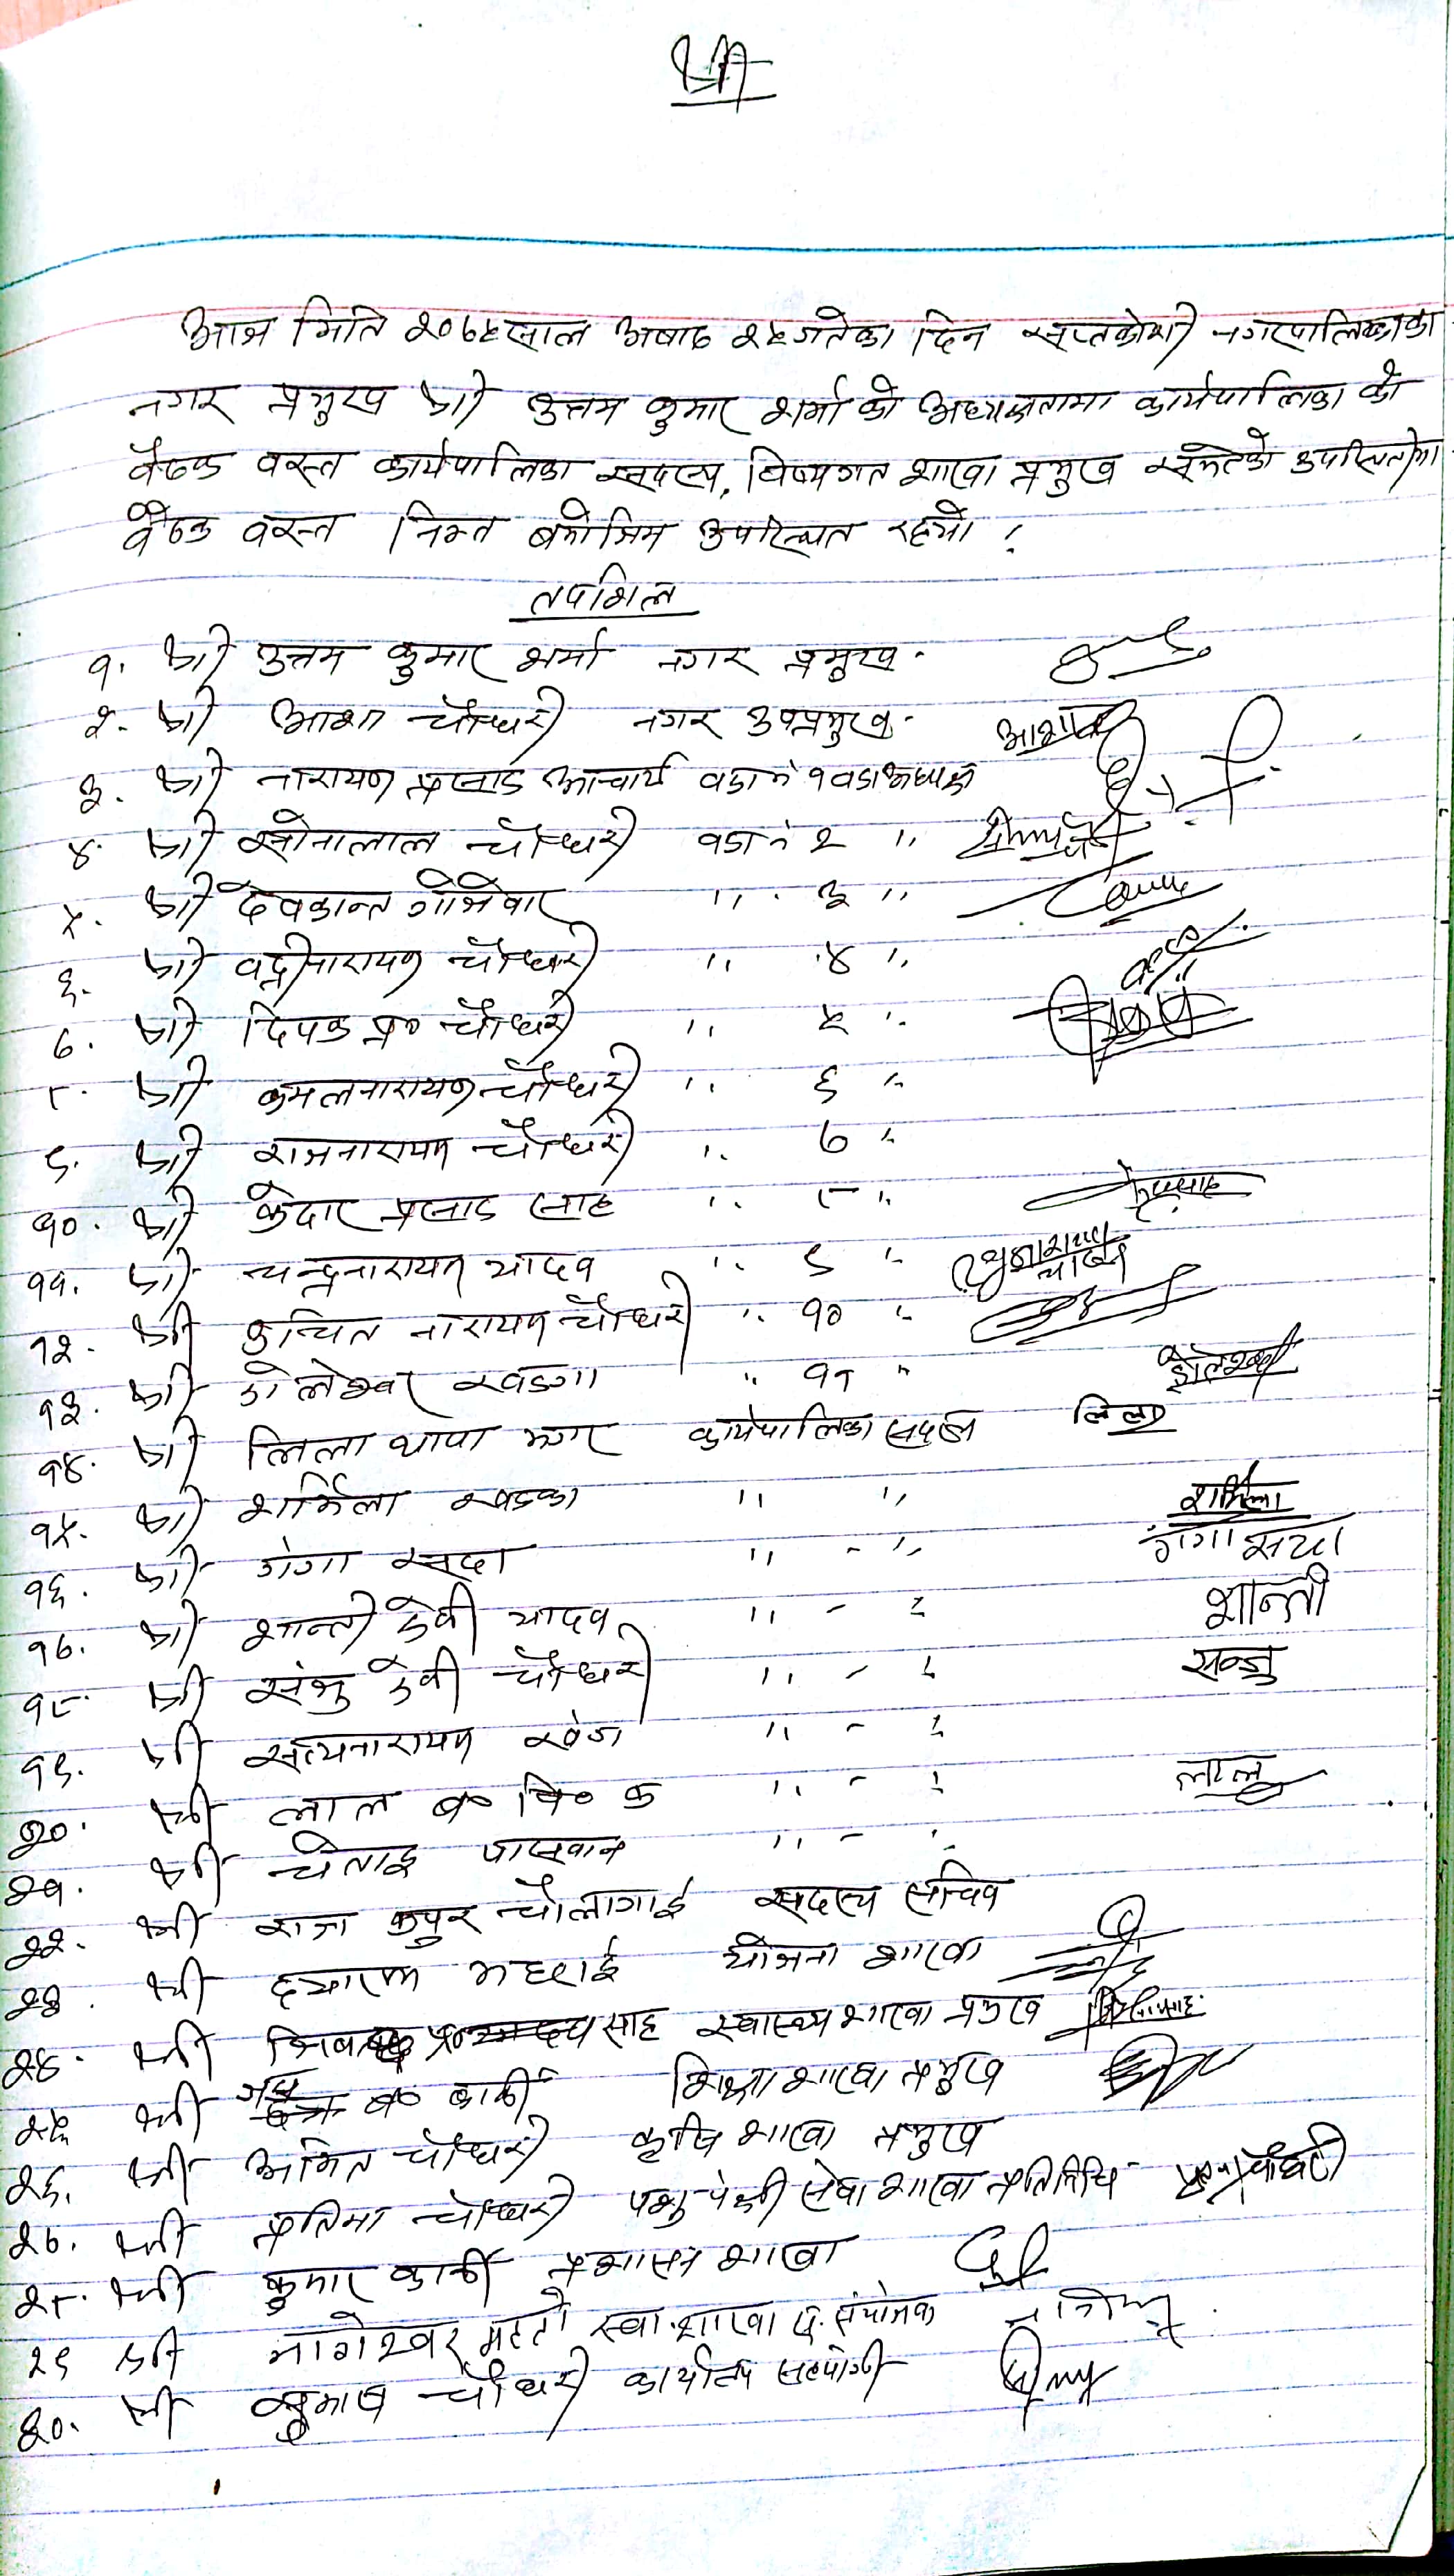 श्री
आज मिति २०७५साल अषाढ २५गतेका दिन सप्तकोशी नगरपालिकाका
नगर प्रमुख श्री उत्तम कुमार शर्मा को अध्यक्षतामा कार्यपालिका को
बैठक वस्न कार्यपालिका सदस्य, विषयगत शाखा प्रमुख समेतको उपस्थितीमा
बैठक वस्न निम्न बमोजिम उपस्थित रहयो ।
तपशिल
१. श्री उत्तम कुमार शर्मा नगर प्रमुख
२. श्री आशा चौधरी नगर उपप्रमुख आशा
३. श्री नारायण प्रसाद आचार्य वडा नं १ वडाअध्यक्ष
४. श्री सोनालाल चौधरी वडा नं २ "
५. श्री देवकान्त " ३ "
६. श्री वद्रीनारायण चौधरी " ४ "
७. श्री दिपक प्र० चौधरी " ५ "
८. श्री कमलनारायण चौधरी " ६ "
९. श्री राजनारायण चौधरी " ७ "
१०. श्री केदार प्रसाद साह " ८ "
११. श्री चन्द्रनारायण यादव " ९ "
१२. श्री कुन्चित नारायण चौधरी " १० "
१३. श्री डोलेश्वर खडगा " ११ "
१४. श्री लिला थापा मगर कार्यपालिका सदस्य लिला
१५. श्री शर्मिला खडका " " शर्मिला
१६. श्री गंगा सदा " - " गंगा सदा
१७. श्री शान्ती देवी यादव " - " शान्ती
१८. श्री संजु देवी चौधरी " - " सन्जु
१९. श्री सत्यनारायण खंग " - "
२०. श्री लाल ब० वि० क " - " लाल
२१. श्री चेताइ पासवान " - "
२२. श्री राज कपुर चौलागाई सदस्य सचिव
२३. श्री दयाराम भट्टराई योजना शाखा
२४. श्री शिव साह स्वास्थ्य शाखा प्रमुख
२५. श्री ब० कार्की शिक्षा शाखा प्रमुख
२६. श्री अमित चौधरी कृषि शाखा प्रमुख
२७. श्री प्रतिमा चौधरी पशु पंक्षी सेवा शाखा प्रतिनिधि चौधरी
२८. श्री कुमार कार्की प्रशासन शाखा
२९ श्री नागेश्वर महतो स्वा. शाखा संयोजक
३०. श्री सुभाष चौधरी कार्यालय सहयोगी